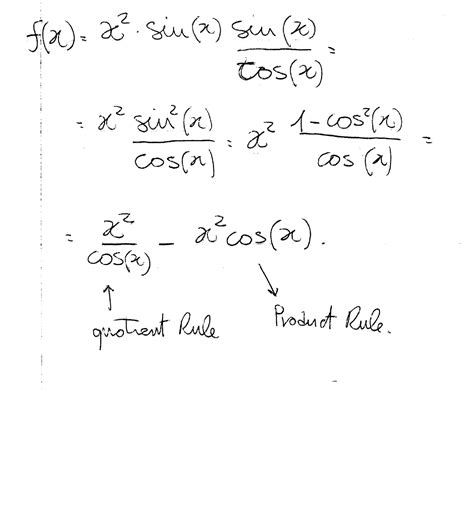 f(x) = x² · sin(x) sin(x)/cos(x) =
= x² sin²(x)/cos(x) = x² 1-cos²(x)/cos(x) =
= x²/cos(x) - x² cos(x).
↑ ↘
quotient Rule Product Rule.